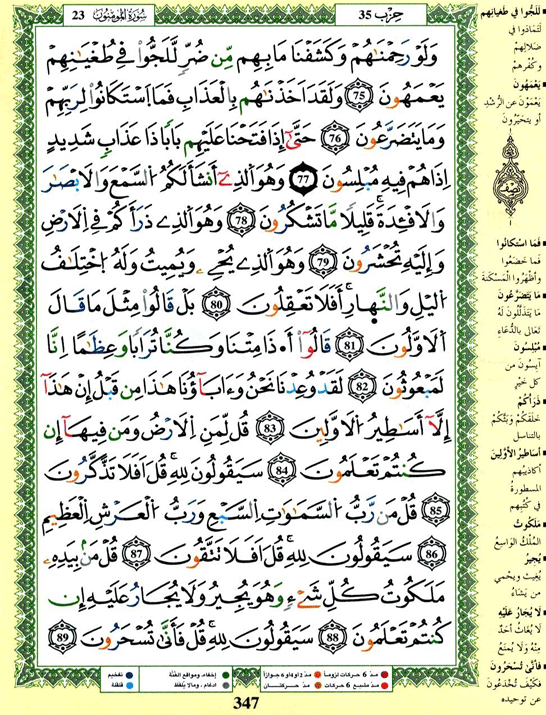 سُورَةُ المُومِنُون 23
حِزْب 35
وَلَوْ رَحِمْنَٰهُمْ وَكَشَفْنَا مَا بِهِم مِّن ضُرٍّ لَّلَجُّواْ فِے طُغْيَٰنِهِمْ
يَعْمَهُونَ 75 وَلَقَدَ اَخَذْنَٰهُم بِالْعَذَابِ فَمَا اَسْتَكَانُواْ لِرَبِّهِمْ
وَمَا يَتَضَرَّعُونَ 76 حَتَّىٰٓ إِذَا فَتَحْنَا عَلَيْهِم بَاباً ذَا عَذَابٍ شَدِيدٍ
اِذَا هُمْ فِيهِ مُبْلِسُونَ 77 وَهُوَ اَلذِےٓ أَنشَأَ لَكُمُ اُلسَّمْعَ وَالَابْصَٰرَ
وَالَافْـِٕدَةَ قَلِيلاً مَّا تَشْكُرُونَ 78 وَهُوَ اَلذِے ذَرَأَكُمْ فِے اِلَارْضِ
وَإِلَيْهِ تُحْشَرُونَ 79 وَهُوَ اَلذِے يُحْيِۦ وَيُمِيتُ وَلَهُ اُخْتِلَٰفُ
اُليْلِ وَالنَّهارِ أَفَلَا تَعْقِلُونَ 80 بَلْ قَالُواْ مِثْلَ مَا قَالَ
اَلَاوَّلُونَ 81 قَالُوٓاْ أَ۟ذَا مِتْنَا وَكُنَّا تُرَاباً وَعِظَٰماً اِنَّا
لَمَبْعُوثُونَ 82 لَقَدْ وُعِدْنَا نَحْنُ وَءَابَآؤُنَا هَٰذَا مِن قَبْلُ إِنْ هَٰذَآ
إِلَّآ أَسَٰطِيرُ اُلَاوَّلِينَ 83 قُل لِّمَنِ اِلَارْضُ وَمَن فِيهَآ إِن
كُنتُمْ تَعْلَمُونَ 84 سَيَقُولُونَ لِلهِ قُلَ اَفَلَا تَذَّكَّرُونَ
85 قُلْ مَن رَّبُّ اُلسَّمَٰوَٰتِ اِلسَّبْعِ وَرَبُّ اُلْعَرْشِ اِلْعَظِيمِ
86 سَيَقُولُونَ لِلهِ قُلَ اَفَلَا تَتَّقُونَ 87 قُلْ مَنۢ بِيَدِهِۦ
مَلَكُوتُ كُلِّ شَےْءٍ وَهُوَ يُجِيرُ وَلَا يُجَارُ عَلَيْهِ إِن
كُنتُمْ تَعْلَمُونَ 88 سَيَقُولُونَ لِلهِ قُلْ فَأَنَّىٰ تُسْحَرُونَ 89
لَلَجُّوا فِي طُغيانِهِم
لَتَمَادَوْا فِي
ضلالِهِمْ
وكُفْرِهِمْ
يَعْمَهُونَ
يَعْمَوْنَ عن الرُّشْدِ
أو يتحيَّرون
نصف
فَمَا اسْتَكَانُوا
فَما خضَعُوا
وأظهَرُوا المَسْكَنةَ
مَا يَتَضَرَّعُونَ
ما يَتَذَلَّلُونَ لَهُ
تعالى بالدُّعاء
مُبْلِسُونَ
آيِسُونَ من
كل خَيْر
ذَرَأَكُمْ
خَلَقَكُمْ وَبَثَّكُمْ
بالتناسل
أساطيرُ الأوَّلِينَ
أكاذيبُهم
المسطورةُ
في كُتُبِهم
مَلَكُوتُ
المُلْكُ الواسِعُ
يُجِيرُ
يُغيث ويحْمي
من يَشَاءُ
لَا يُجَارُ عَلَيْهِ
لا يُغَاثُ أحَدٌ
مِنْهُ وَلَا يُمنَعُ
فَأنَّى تُسْحَرُونَ
فَكَيْفَ تُخْدَعُونَ
عن توحيدِه
مدّ 6 حركات لزوماً
مدّ 2 أو 4 أو 6 جوازاً
إخفاء، ومواقع الغنّة
تفخيم
مدّ مشبع 6 حركات
مدّ حركتان
ادغام، ومالا يلفظ
قلقلة
347